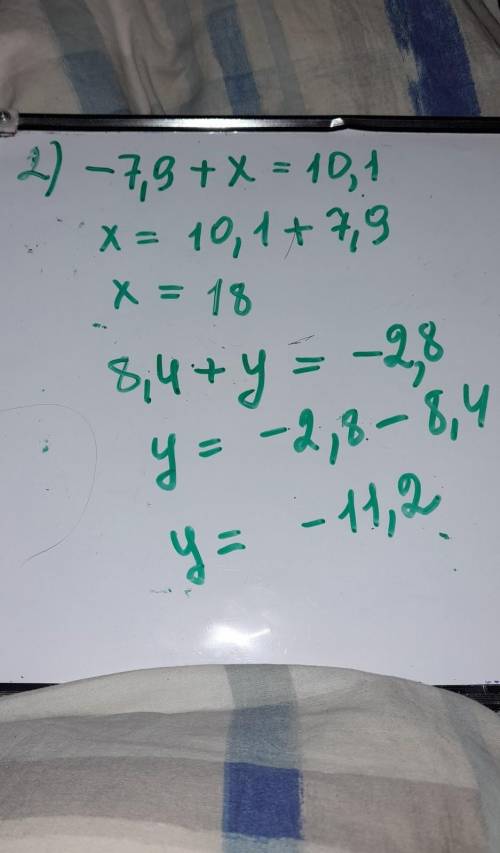 2) -7,9 + x = 10,1
x = 10,1 + 7,9
x = 18
8,4 + y = -2,8
y = -2,8 - 8,4
y = -11,2